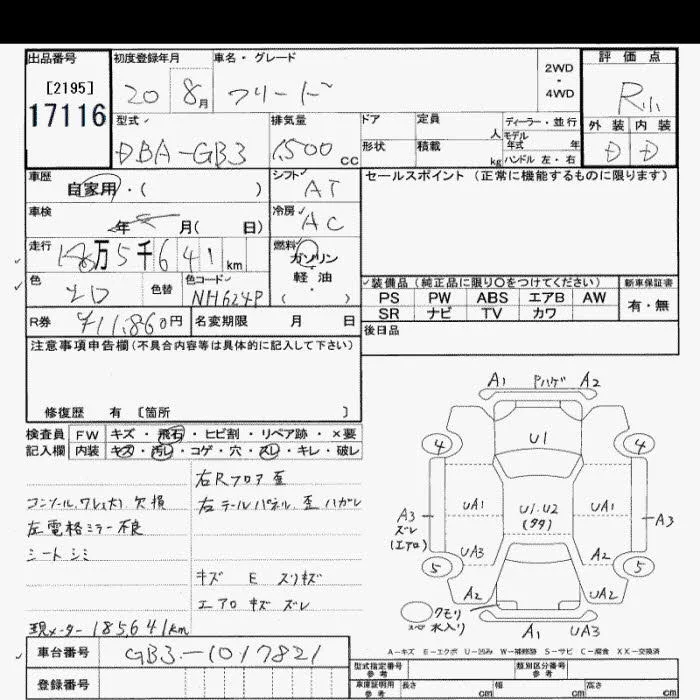 出品番号 初度登録年月 車名・グレード 2WD・4WD 評価点
[2195]
17116
20 8月 フリード
外装 内装
D D
型式 排気量 ドア 定員 人 ディーラー・並行
モデル年式 年
DBA-GB3 1,500cc 形状 積載 kg ハンドル 左・右
車歴 シフト セールスポイント (正常に機能するものに限ります)
自家用・( ) AT
車検 年 月( 日) 冷房 AC
走行 燃料
18万5千641km ガソリン
軽・油
( ・ )
色 色替 色コード 装備品 (純正品に限り○をつけてください) 新車保証書
NH624P PS PW ABS エアB AW 有・無
SR ナビ TV カワ
R券 ¥11,860円 名変期限 月 日 後日品
注意事項申告欄 (不具合内容等は具体的に記入して下さい)
修復歴 有 [箇所 ]
検査員 FW キズ・飛石・ヒビ割・リペア跡・×要
記入欄 内装 キズ・汚レ・コゲ・穴・スレ・キレ・破レ
右Rフロア 歪
コンソール, フレ(大) 欠損 右テールパネル 歪 ハガレ
左電格ミラー不良
シート シミ
キズ E スリキズ
エアロ キズ ズレ
現メーター 185,641km
車台番号 GB3-1017821
登録番号
A1 Pハゲ A2
4 U1 4
A3 UA1 U1.U2 UA1 A3
ズレ (タタ)
(エアロ)
UA3 A2
5 5
A2 UA2
クモリ
スペア 水入り A1 UA3
A-キズ E-エクボ U-凹み W-補修跡 S-サビ C-腐食 XX-交換済
型式指定番号 参考 類別区分番号 参考
車庫証明用 参考 長さ cm 幅 cm 高さ cm